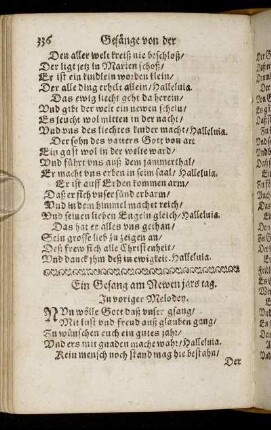 336 Gesänge von der
Den aller welt kreiß nie beschloß/
Der ligt jetz in Marien schoß/
Er ist ein kindlein worden klein/
Der alle ding erhelt allein/Halleluia.
Das ewig liecht geht da herein/
Vnd gibt der welt ein newen schein/
Es leucht wol mitten in der nacht/
Vnd vns des liechtes kinder macht/Halleluia.
Der sohn des vatters Gott von art
Ein gast wol in der welte ward/
Vnd führt vns auß dem jammerthal/
Er macht vns erben in seim saal/ Halleluia.
Er ist auff Erden kommen arm/
Daß er sich vnser sünd erbarm/
Vnd in dem himmel machet reich/
Vnd seinen lieben Engeln gleich/Halleluia.
Das hat er alles vns gethan/
Sein grosse lieb zu zeigen an/
Deß frew sich alle Christenheit/
Vnd danck jhm deß in ewigkeit. Halleluia.
Ein Gesang am Newen jars tag.
In voriger Melodey.
NVn wölle Gott daß vnser gsang/
Mit lust vnd freud auß glauben gang/
Zu wünschen euch ein gutes jahr/
Vnd ers mit gnaden mache wahr/Halleluia.
Kein mensch noch stand mag die bestahn/
Der